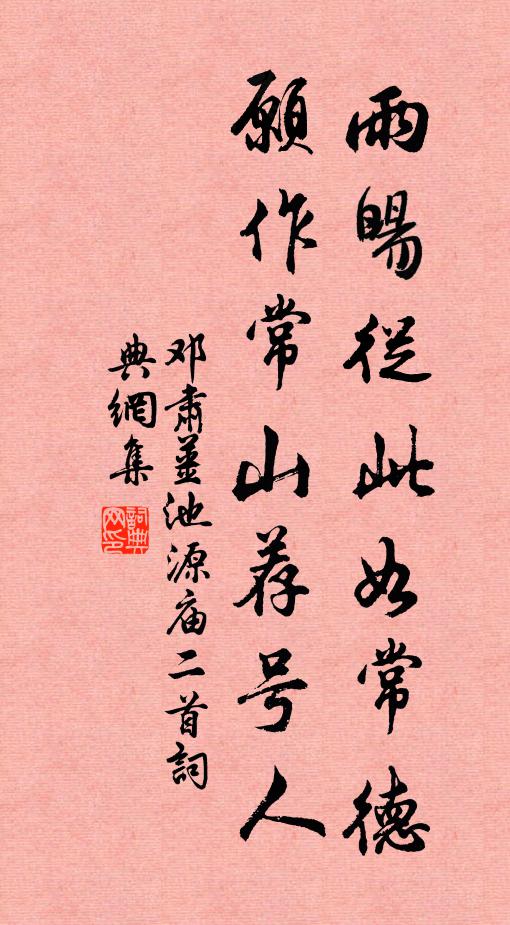 雨暘從此如常德
願作常山荐号人
邓肅薑池源庙二首詞
典網集
詞典网印